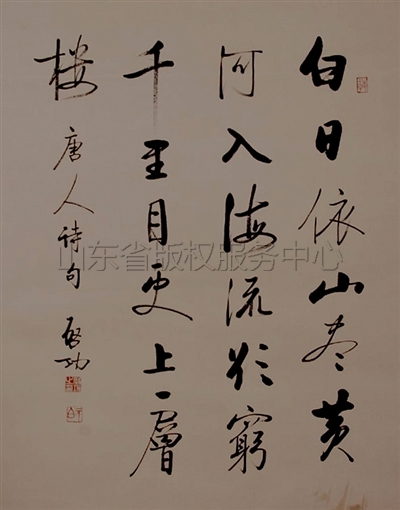 白日依山尽黄
河入海流欲窮
千里目更上一層
楼
唐人诗句 启功
山东省版权服务中心